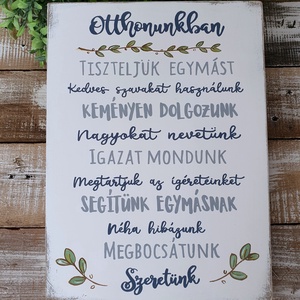 Otthonunkban
TISZTELJÜK EGYMÁST
Kedves szavakat használunk
KEMÉNYEN DOLGOZUNK
Nagyokat nevetünk
IGAZAT MONDUNK
Megtartjuk az ígéreteinket
SEGÍTÜNK EGYMÁSNAK
Néha hibázunk
MEGBOCSÁTUNK
Szeretünk